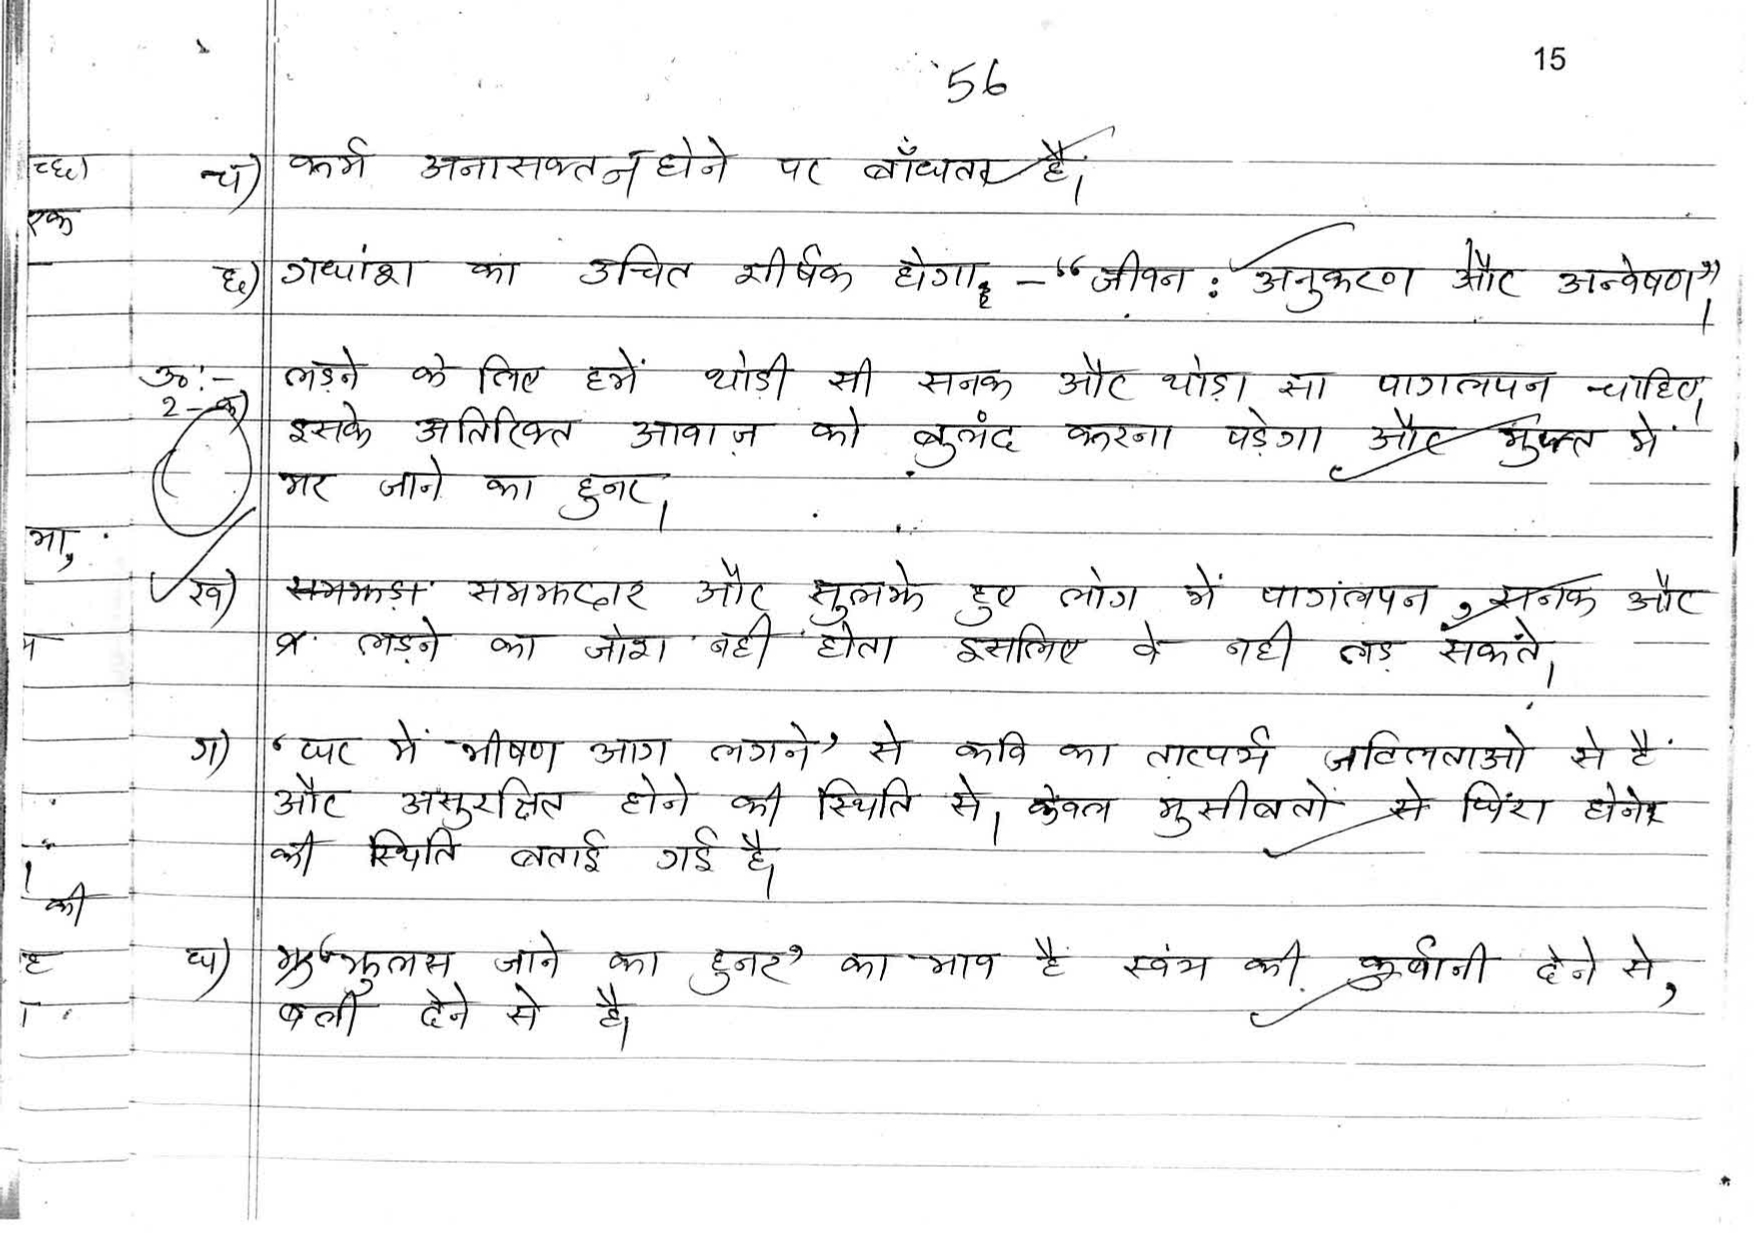 15
56
च) कर्म अनासक्त न होने पर बाँधता है।
छ) गद्यांश का उचित शीर्षक होगा - “जीवन : अनुकरण और अन्वेषण”।
उ०:- लड़ने के लिए हमें थोड़ी सी सनक और थोड़ा सा पागलपन चाहिए।
2-क) इसके अतिरिक्त आवाज़ को बुलंद करना पड़ेगा और मुफ्त में
मर जाने का हुनर।
ख) समझदार और सुलझे हुए लोग में पागलपन, सनक और
लड़ने का जोश नही होता इसलिए वे नही लड़ सकते।
ग) ‘घर में भीषण आग लगने’ से कवि का तात्पर्य जटिलताओ से है
और असुरक्षित होने की स्थिति से। केवल मुसीबतों से घिरा होने
की स्थिति बताई गई है।
घ) ‘झुलस जाने का हुनर’ का भाव है स्वंय की कुर्बानी देने से,
बली देने से है।
एक
भा,
की